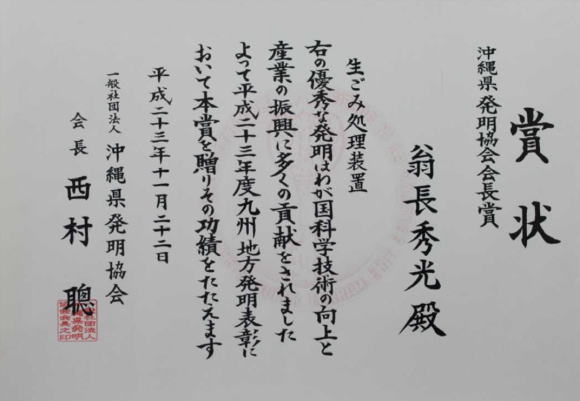 賞状
沖縄県発明協会会長賞
翁長秀光殿
生ごみ処理装置
右の優秀な発明はわが国科学技術の向上と
産業の振興に多くの貢献をされました
よって平成二十三年度九州地方発明表彰に
おいて本賞を贈りその功績をたたえます
平成二十三年十一月二十二日
一般社団法人 沖縄県発明協会
会長 西村 聰